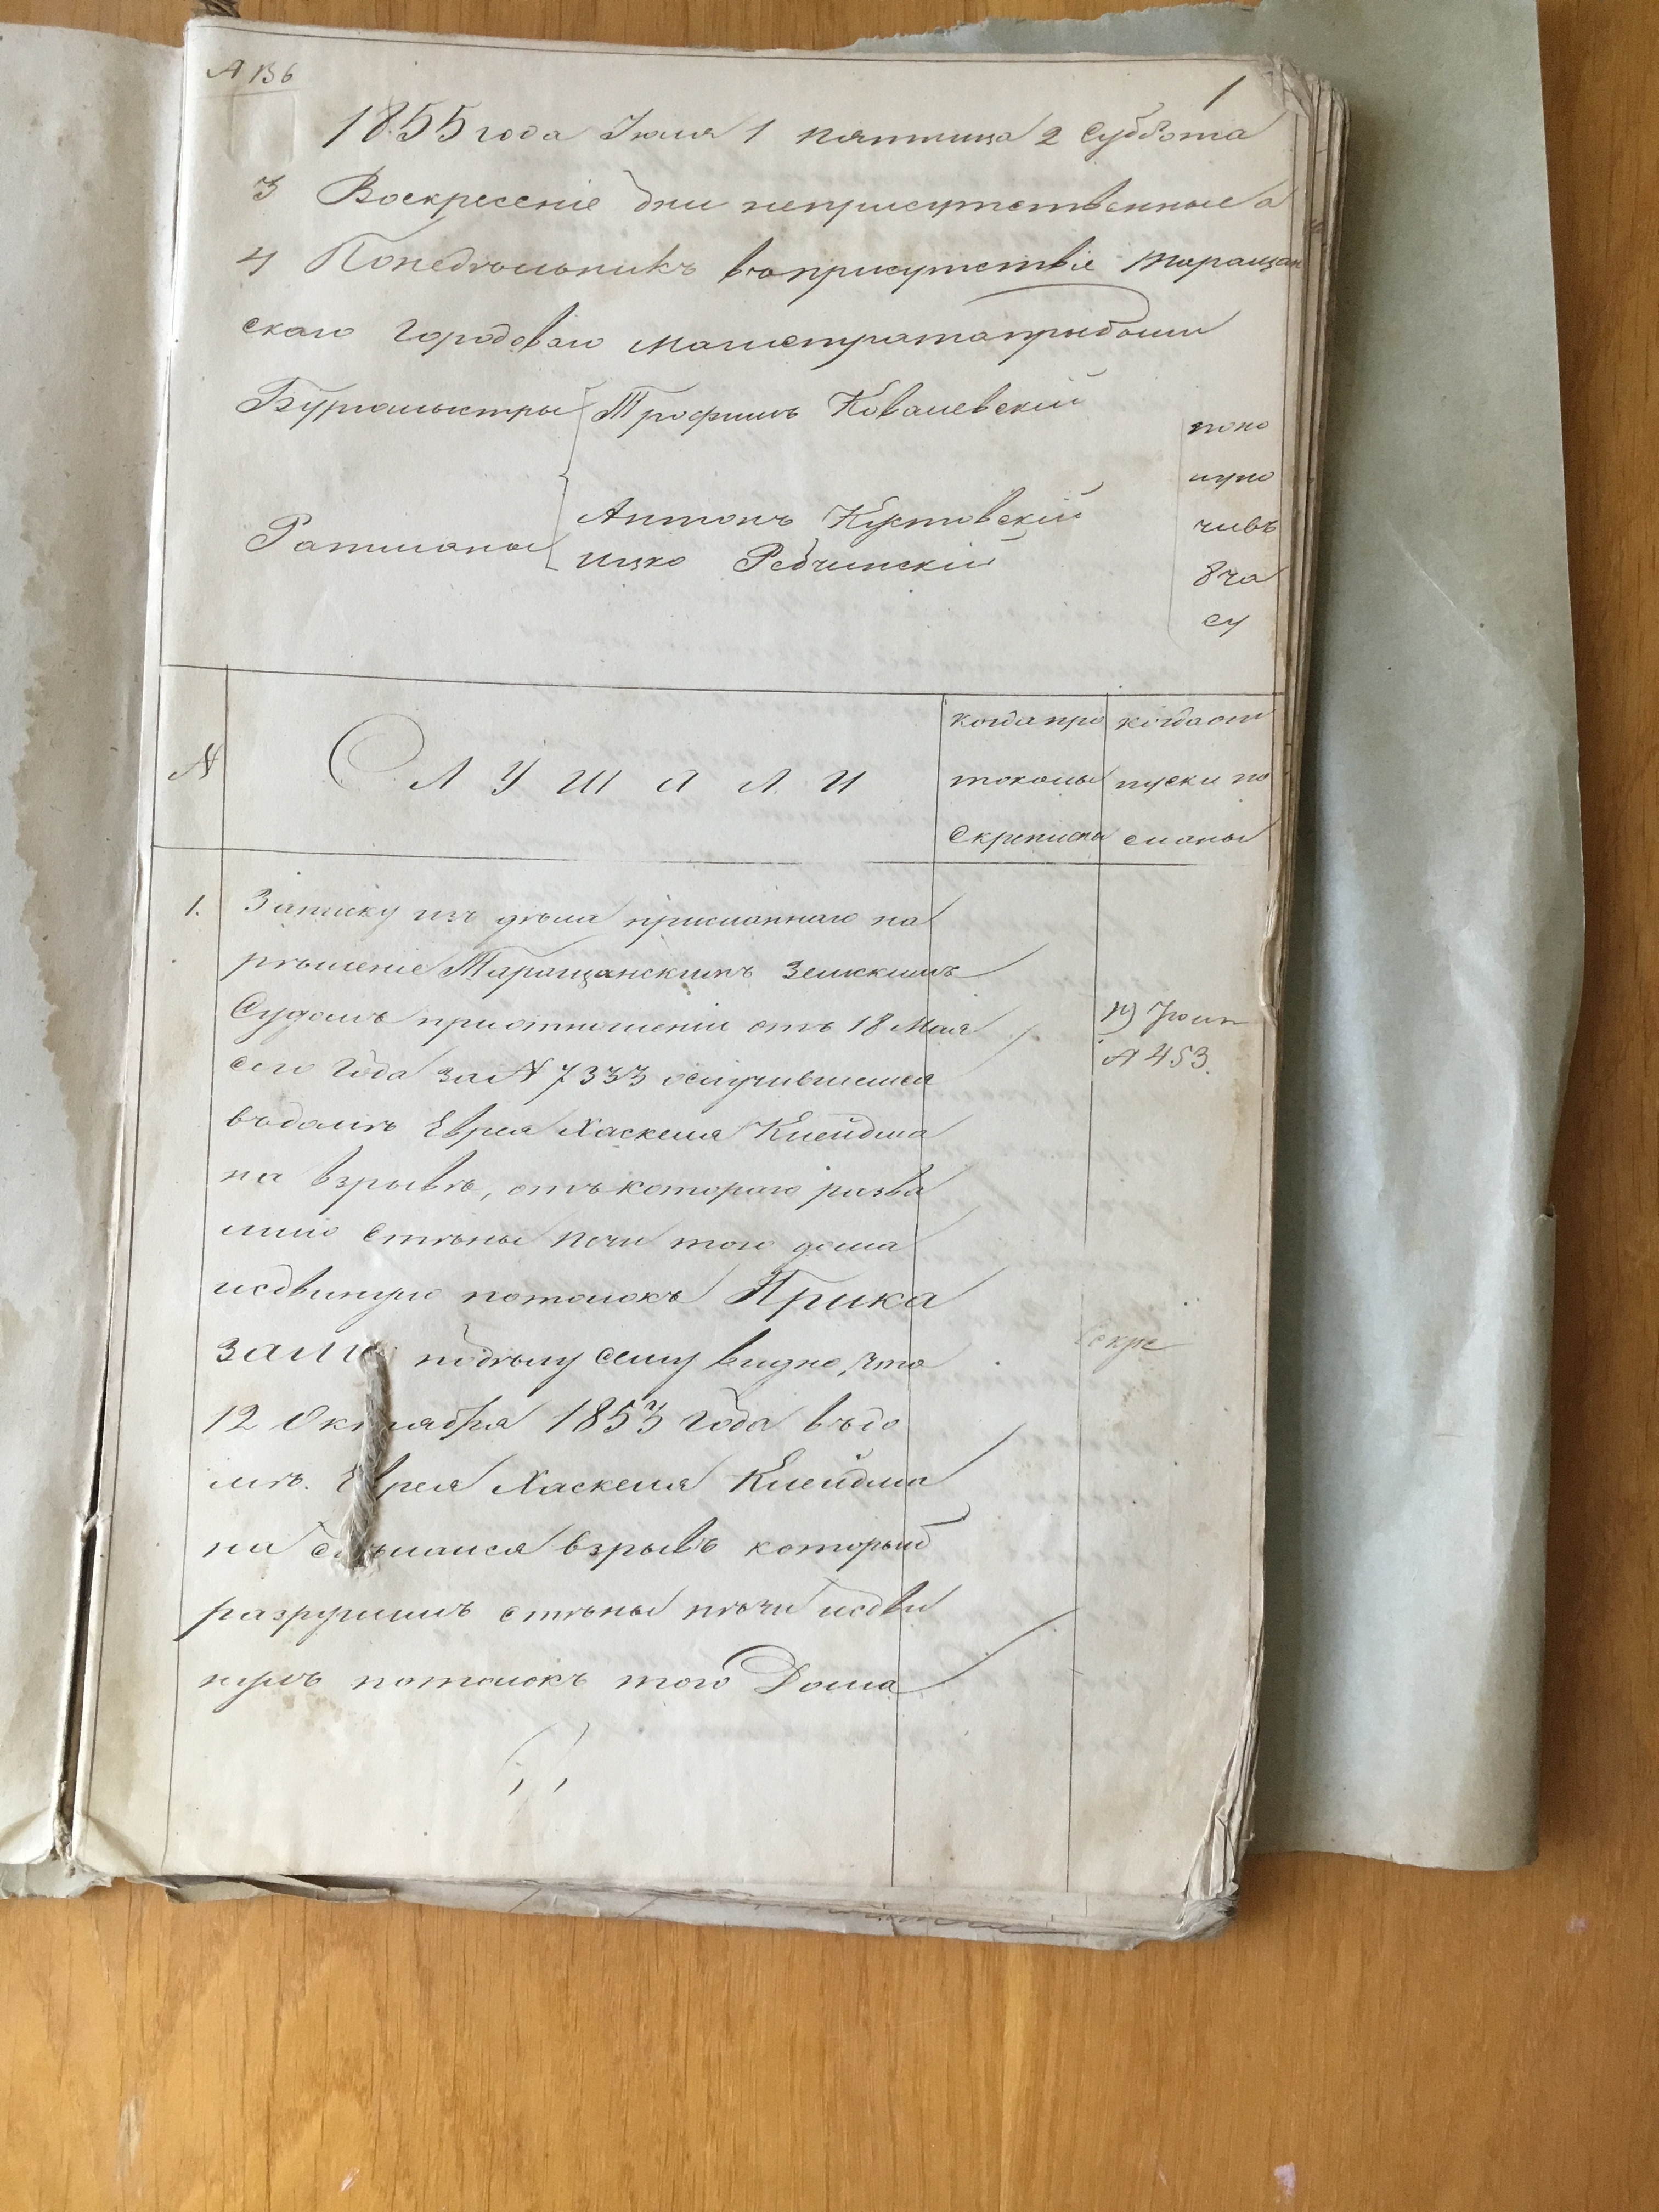 № 136
1
1855 года Июля 1 пятница 2 Суббота
3 Воскресеніе дни неприсутственные а
4 Понедѣльникъ въ присутствіе Таращан
скаго городоваго магистрата прибыли
Бургомистры Трофимъ Ковалевскій
Ратманы Антонъ Кустовскій
Ицко Рабчинскій
попо
луно
чивъ
8 ча
су
№
Слушали
когда про
токолы
скреплены
когда от
пуски по
сланы
1. Записку изъ дѣла присланнаго на
рѣшеніе Таращанскимъ Земскимъ
Судомъ при отношеніи отъ 18 Мая
сего года за № 7333 о случившемся
въ домѣ Еврея Хаскеля Клейдма
на взрывѣ, отъ котораго разва
лило стѣны печи того дома
и сдвинуло потолокъ Прика
зали по дѣлу сему видно, что
12 Октября 1853 года въ до
мѣ Еврея Хаскеля Клейдма
на сдѣлался взрывъ который
разрушилъ стѣны пѣчи и сдви
нулъ потолокъ того Дома
19 Июля
№ 453.